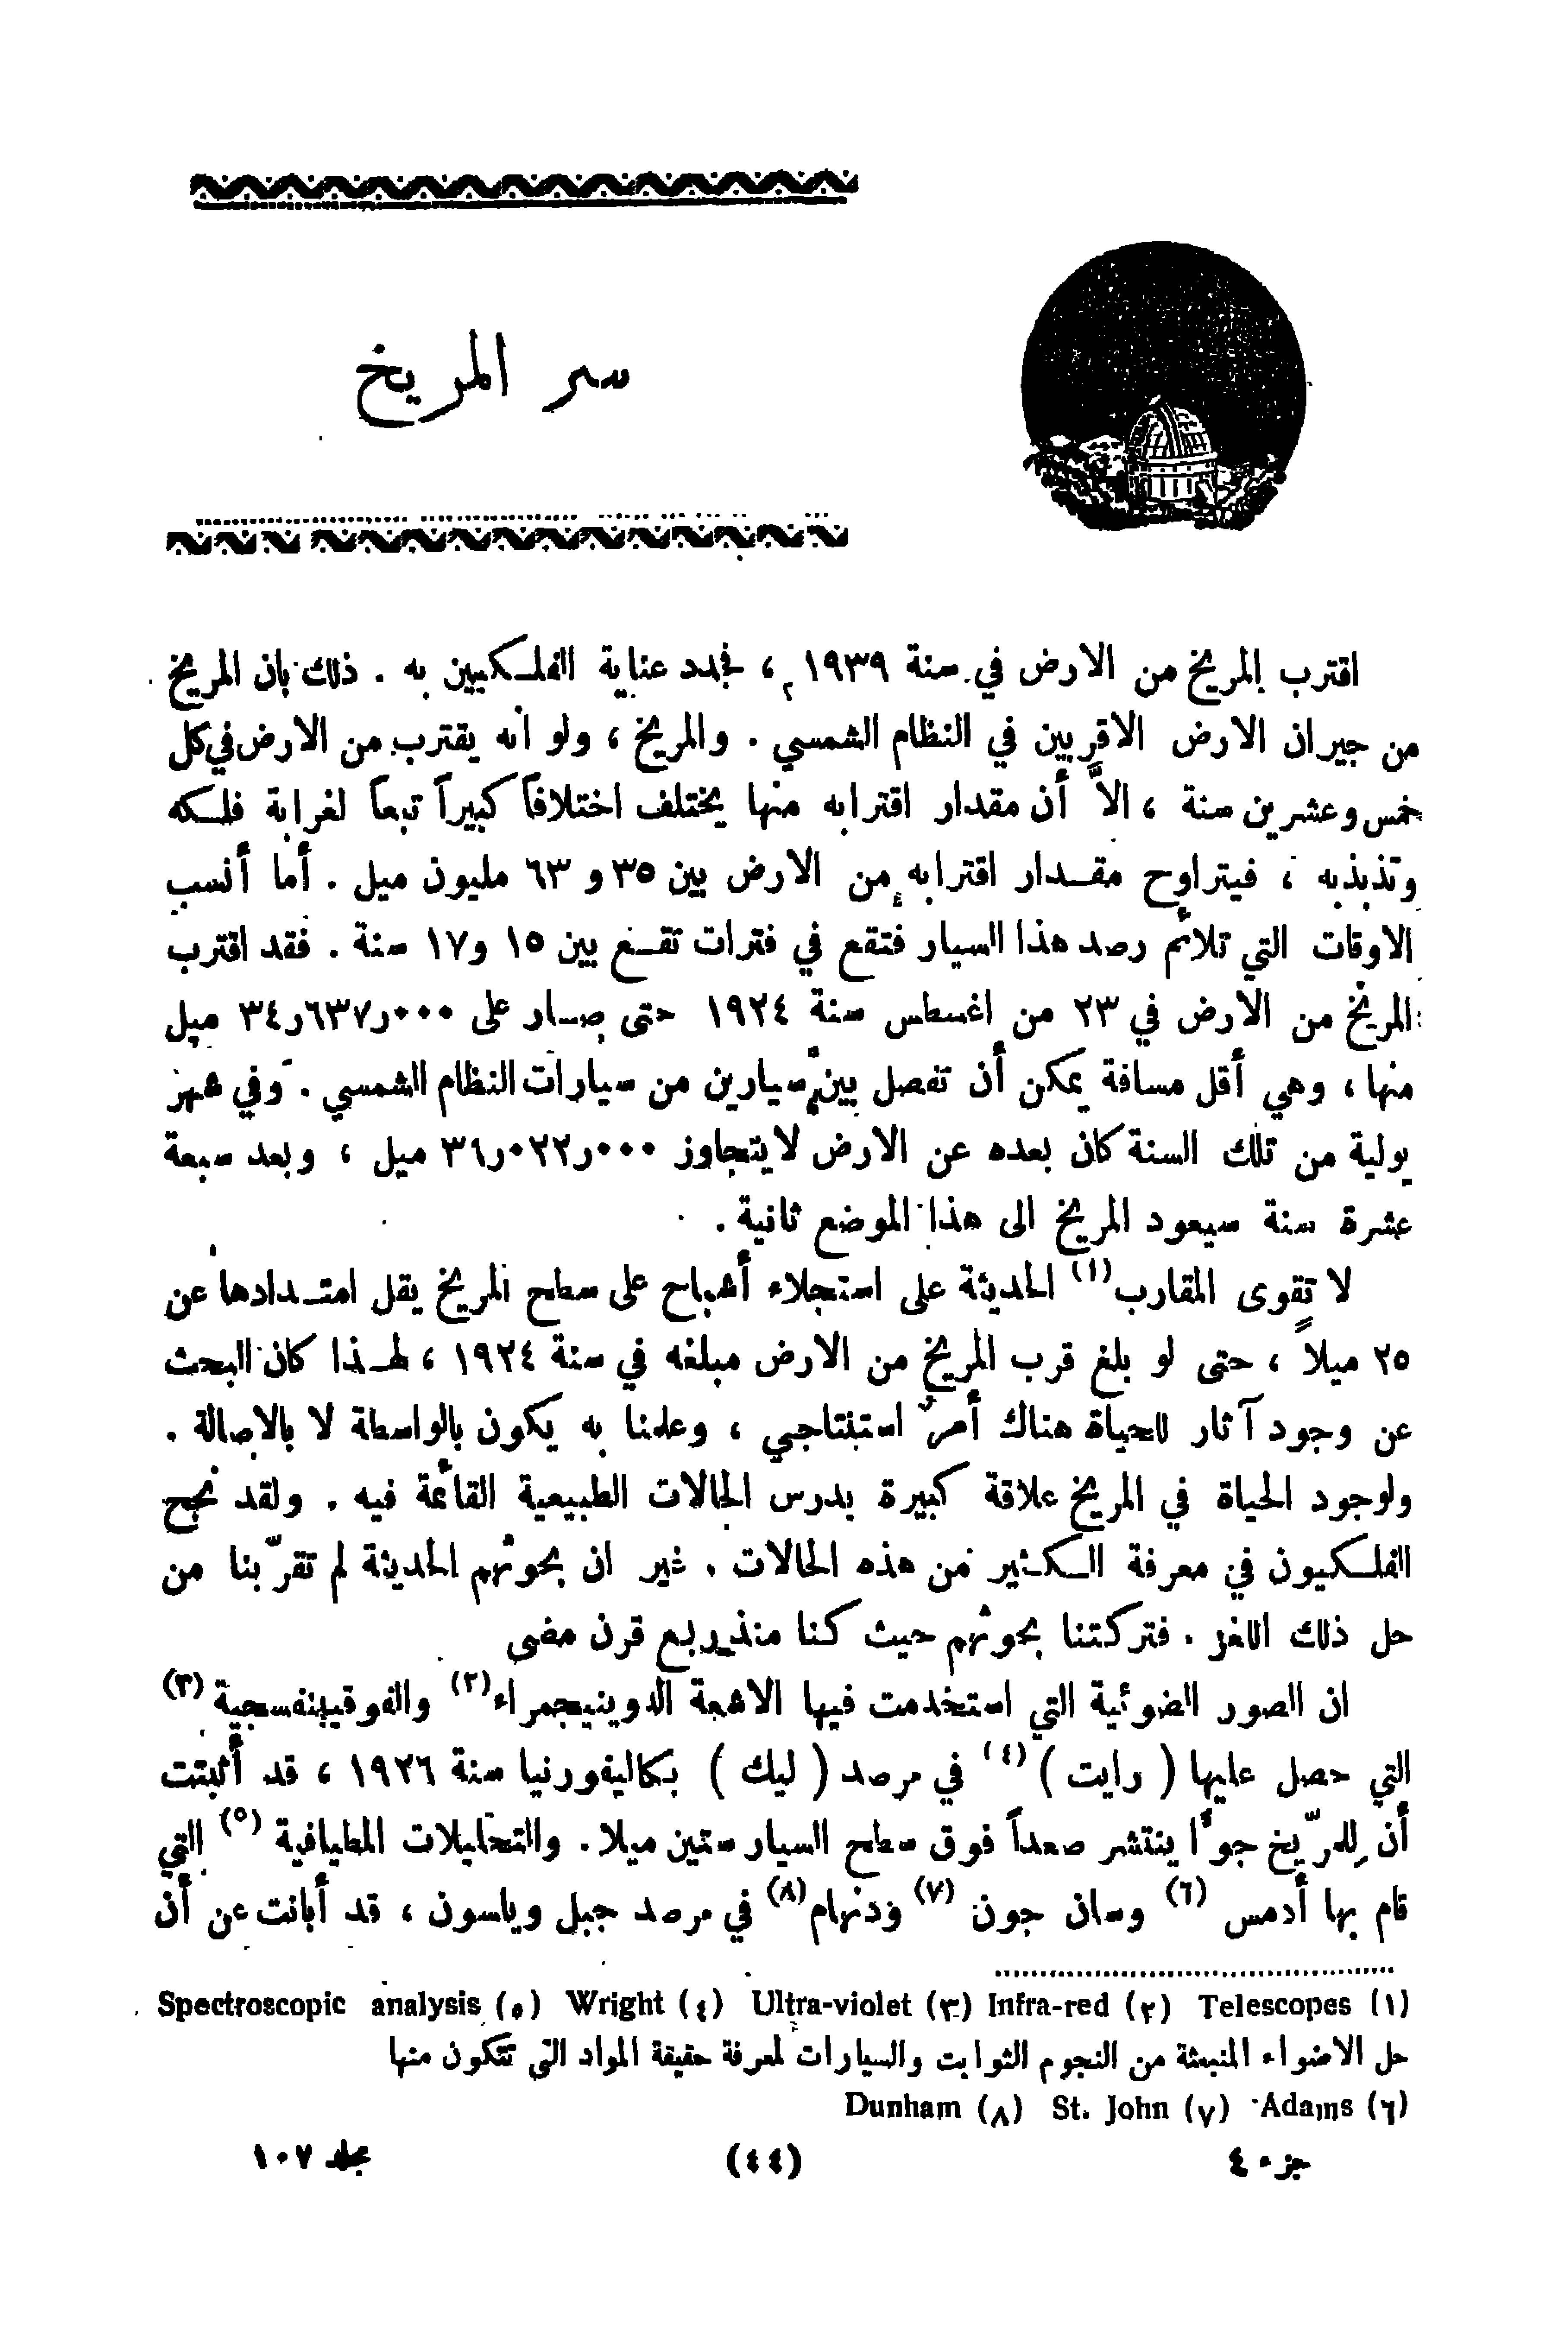 سر المريخ
اقترب المريخ من الارض في سنة ١٩٣٩م ، فجدد عناية الفلكيين به . ذلك بان المريخ
من جيران الارض الاقربين في النظام الشمسي . والمريخ ، ولو انه يقترب من الارض في كل
خمس وعشرين سنة ، الاَّ أن مقدار اقترابه منها يختلف اختلافاً كبيراً تبعاً لغرابة فلكه
وتذبذبه ، فيتراوح مقدار اقترابه من الارض بين ٣٥ و ٦٣ مليون ميل . أما أنسب
الاوقات التي تلائم رصد هذا السيار فتقع في فترات تقع بين ١٥ و١٧ سنة . فقد اقترب
المريخ من الارض في ٢٣ من اغسطس سنة ١٩٢٤ حتى صار على ٣٤٫٦٣٧٫٠٠٠ ميل
منها ، وهي أقل مسافة يمكن أن تفصل بين سيارين من سيارات النظام الشمسي . وفي شهر
يولية من تلك السنة كان بعده عن الارض لا يتجاوز ٣٦٫٠٢٢٫٠٠٠ ميل ، وبعد سبعة
عشرة سنة سيعود المريخ الى هذا الموضع ثانية .
لا تقوى المقارب (١) الحديثة على استجلاء أشباح على سطح المريخ يقل امتدادها عن
٢٥ ميلاً ، حتى لو بلغ قرب المريخ من الارض مبلغه في سنة ١٩٢٤ ، لهذا كان البحث
عن وجود آثار للحياة هناك أمرٌ استنتاجي ، وعلمنا به يكون بالواسطة لا بالاصالة .
ولوجود الحياة في المريخ علاقة كبيرة بدرس الحالات الطبيعية القائمة فيه . ولقد نجح
الفلكيون في معرفة الكثير من هذه الحالات . غير ان بحوثهم الحديثة لم تقرّبنا من
حل ذلك اللغز . فتركتنا بحوثهم حيث كنا منذ ربع قرن مضى
ان الصور الضوئية التي استخدمت فيها الاشعة الدوينيحمراء (٢) والفوقيبنفسجية (٣)
التي حصل عليها ( رايت ) (٤) في مرصد ( ليك ) بكاليفورنيا سنة ١٩٢٦ ، قد أثبتت
أن للمرّيخ جوًّا ينتشر صعداً فوق سطح السيار ستين ميلا . والتحليلات المطيافية (٥) التي
قام بها أدمس (٦) وسان جون (٧) ودنهام (٨) في مرصد جبل ويلسون ، قد أبانت عن أن
(١) Telescopes (٢) Infra-red (٣) Ultra-violet (٤) Wright (٥) Spectroscopic analysis
حل الاضواء المنبعثة من النجوم الثوابت والسيارات لمعرفة حقيقة المواد التي تتكون منها
(٦) Adams (٧) St. John (٨) Dunham
جزء ٤ (٤٤) مجلد ١٠٧